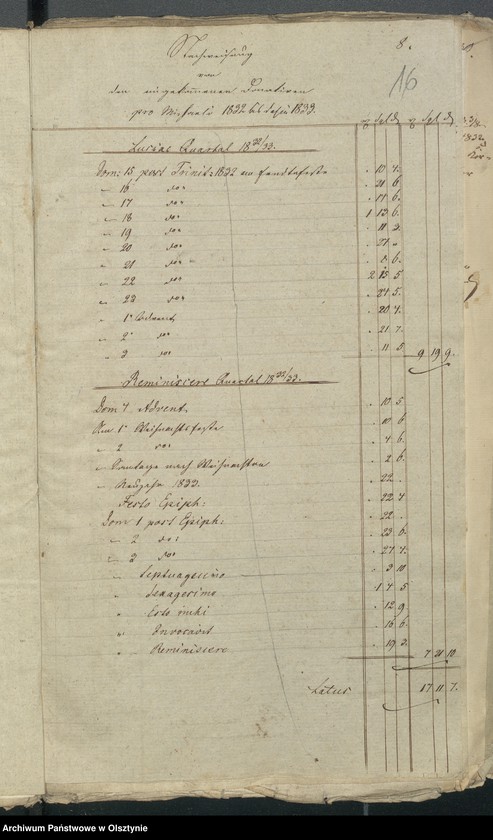 8.
16
Nachweisung
von
den eingekommenen Donativen
pro Michaeli 1832 bis dahin 1833.
Luciae Quartal 18 32/33.
Dom: 15 post Trinit: 1832 am Erndtefeste . 10 4.
" 16 do . 21 6
" 17 do . 17 6.
" 18 do 1 13 6.
" 19 do . 11 3.
" 20 do . 27 "
" 21 do . 8 6.
" 22 do 2 15 5
" 23 do . 24 5.
" 1r Advent . 20 4.
" 2 do . 21 7.
" 3 do . 11 5. 9 19 9.
Reminiscere Quartal 18 32/33.
Dom 4 Advent . 10 5
Am 1n Weihnachtsfeste . 10 6
" 2 do . 4 6.
" Sontage nach Weihnachten . 2 6.
" Neujahr 1833. . 22 .
Festo Epiph: . 22 4
Dom 1 post Epiph: . 22 .
" 2 do . 23 6.
" 3 do . 27 4.
" Septuagesimo . 3 10
" Sexagesimo . 1 4 5
" Esto mihi . 12 9
" Invocavit . 16 6.
" Reminiscere . 19 3.
7 21 10
Latus 17 11 7.
Archiwum Państwowe w Olsztynie